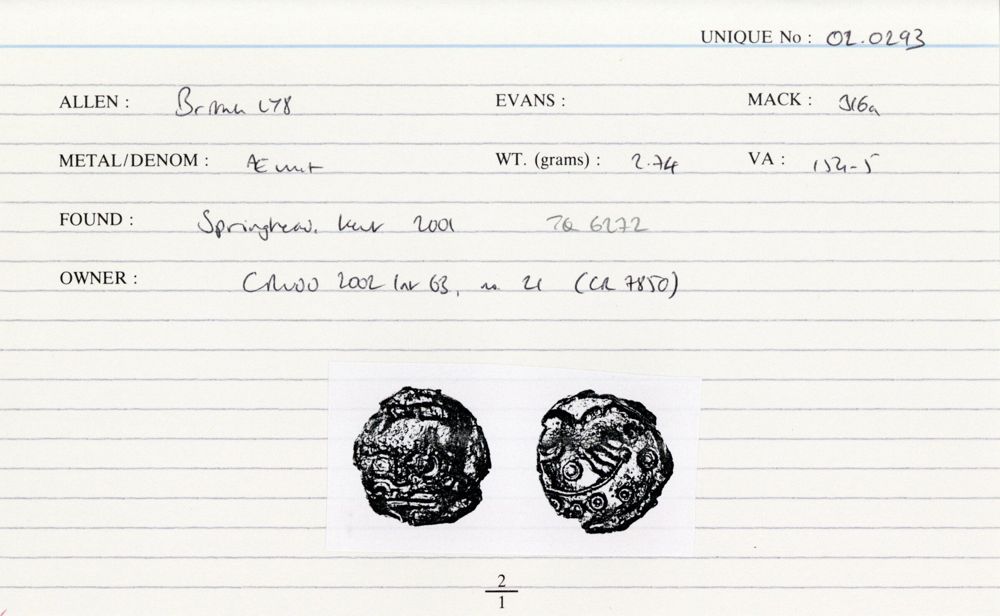 UNIQUE No : 02.0293
ALLEN : British LY8 EVANS : MACK : 316a
METAL/DENOM : Æ unit WT. (grams) : 2.74 VA : 154-5
FOUND : Springhead. Kent 2001 TQ 6272
OWNER : 2002 63, no. 21 (CR 7850)
2
1